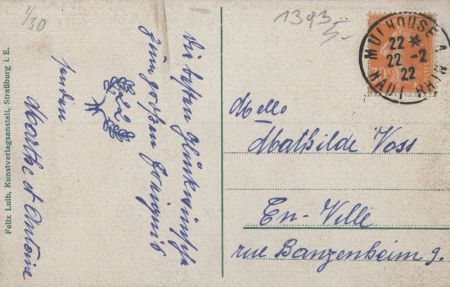 1/30
1393
5.-
MULHOUSE A.
22 *
22 - 2
22
HAUT RHIN
Die besten Glückwünsche
zum großen Ereignis
22
senden
Marthe et Antoine
Felix Luib, Kunstverlagsanstalt, Straßburg i. E.
Melle
Mathilde Voss
En-Ville
rue Banzenheim 9.